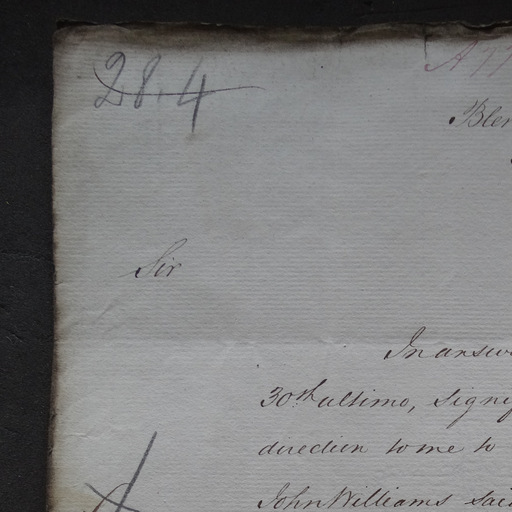 28.4
Sir
In answ
30th ultimo, Signif
direction to me to
John Williams said